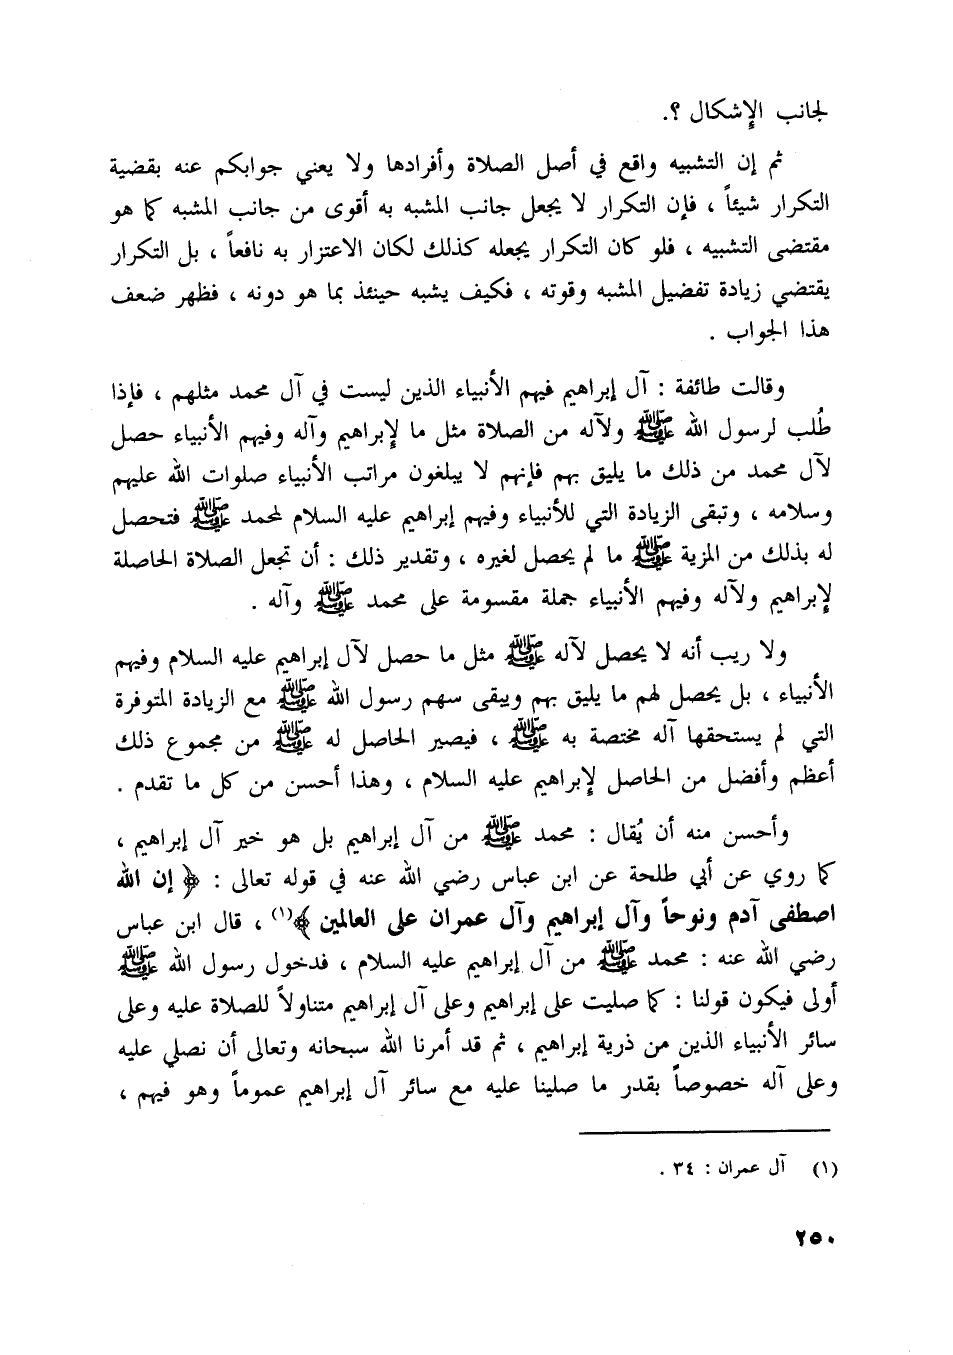 لجانب الإشكال ؟.
ثم إن التشبيه واقع في أصل الصلاة وأفرادها ولا يعني جوابكم عنه بقضية
التكرار شيئاً ، فإن التكرار لا يجعل جانب المشبه به أقوى من جانب المشبه كما هو
مقتضى التشبيه ، فلو كان التكرار يجعله كذلك لكان الاعتزار به نافعاً ، بل التكرار
يقتضي زيادة تفضيل المشبه وقوته ، فكيف يشبه حينئذ بما هو دونه ، فظهر ضعف
هذا الجواب .
وقالت طائفة : آل إبراهيم فيهم الأنبياء الذين ليست في آل محمد مثلهم ، فإذا
طُلب لرسول الله ﷺ ولآله من الصلاة مثل ما لإبراهيم وآله وفيهم الأنبياء حصل
لآل محمد من ذلك ما يليق بهم فإنهم لا يبلغون مراتب الأنبياء صلوات الله عليهم
وسلامه ، وتبقى الزيادة التي للأنبياء وفيهم إبراهيم عليه السلام لمحمد ﷺ فتحصل
له بذلك من المزية ﷺ ما لم يحصل لغيره ، وتقدير ذلك : أن تجعل الصلاة الحاصلة
لإبراهيم ولآله وفيهم الأنبياء جملة مقسومة على محمد ﷺ وآله .
ولا ريب أنه لا يحصل لآله ﷺ مثل ما حصل لآل إبراهيم عليه السلام وفيهم
الأنبياء ، بل يحصل لهم ما يليق بهم ويبقى سهم رسول الله ﷺ مع الزيادة المتوفرة
التي لم يستحقها آله مختصة به ﷺ ، فيصير الحاصل له ﷺ من مجموع ذلك
أعظم وأفضل من الحاصل لإبراهيم عليه السلام ، وهذا أحسن من كل ما تقدم .
وأحسن منه أن يُقال : محمد ﷺ من آل إبراهيم بل هو خير آل إبراهيم ،
كما روي عن أبي طلحة عن ابن عباس رضي الله عنه في قوله تعالى : ﴿ إن الله
اصطفى آدم ونوحاً وآل إبراهيم وآل عمران على العالمين ﴾(١) ، قال ابن عباس
رضي الله عنه : محمد ﷺ من آل إبراهيم عليه السلام ، فدخول رسول الله ﷺ
أولى فيكون قولنا : كما صليت على إبراهيم وعلى آل إبراهيم متناولاً للصلاة عليه وعلى
سائر الأنبياء الذين من ذرية إبراهيم ، ثم قد أمرنا الله سبحانه وتعالى أن نصلي عليه
وعلى آله خصوصاً بقدر ما صلينا عليه مع سائر آل إبراهيم عموماً وهو فيهم ،
(١) آل عمران : ٣٤ .
٢٥٠